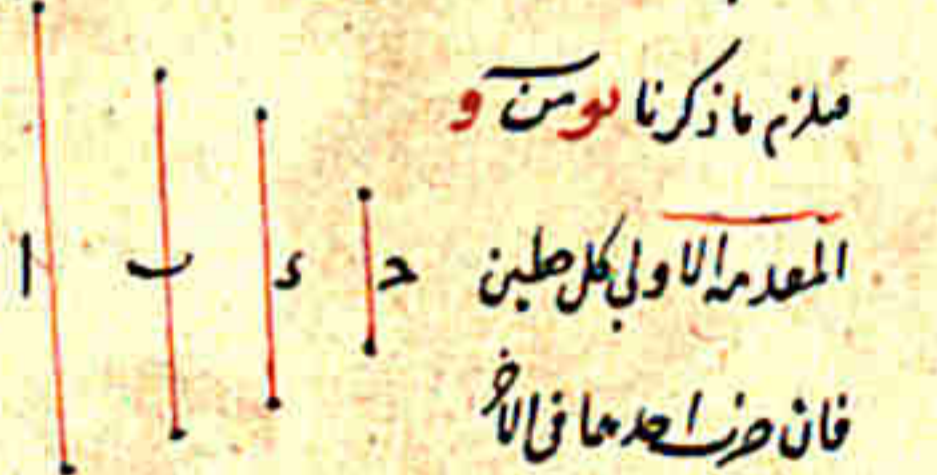 فيلزم ما ذكرنا يو من و
المقدمة الاولى كل خطين
فان ضرب احدهما فى الاخر
ا ب د ح